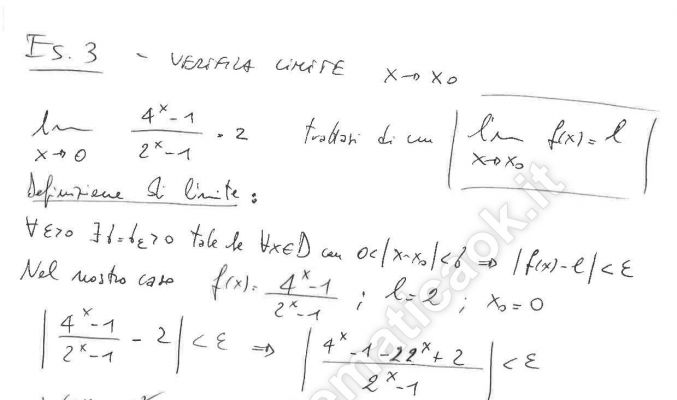 Es. 3 - VERIFICA LIMITE x→x₀
lim x→0 (4^x-1)/(2^x-1) = 2 trattasi di un lim x→x₀ f(x)=l
Definizione di limite:
∀ε>0 ∃δ=δ_ε>0 tale che ∀x∈D con 0<|x-x₀|<δ ⇒ |f(x)-l|<ε
Nel nostro caso f(x)= (4^x-1)/(2^x-1) ; l=2 ; x₀=0
|(4^x-1)/(2^x-1) - 2|<ε ⇒ |(4^x-1-2 2^x+2)/(2^x-1)|<ε
ematicaok.it